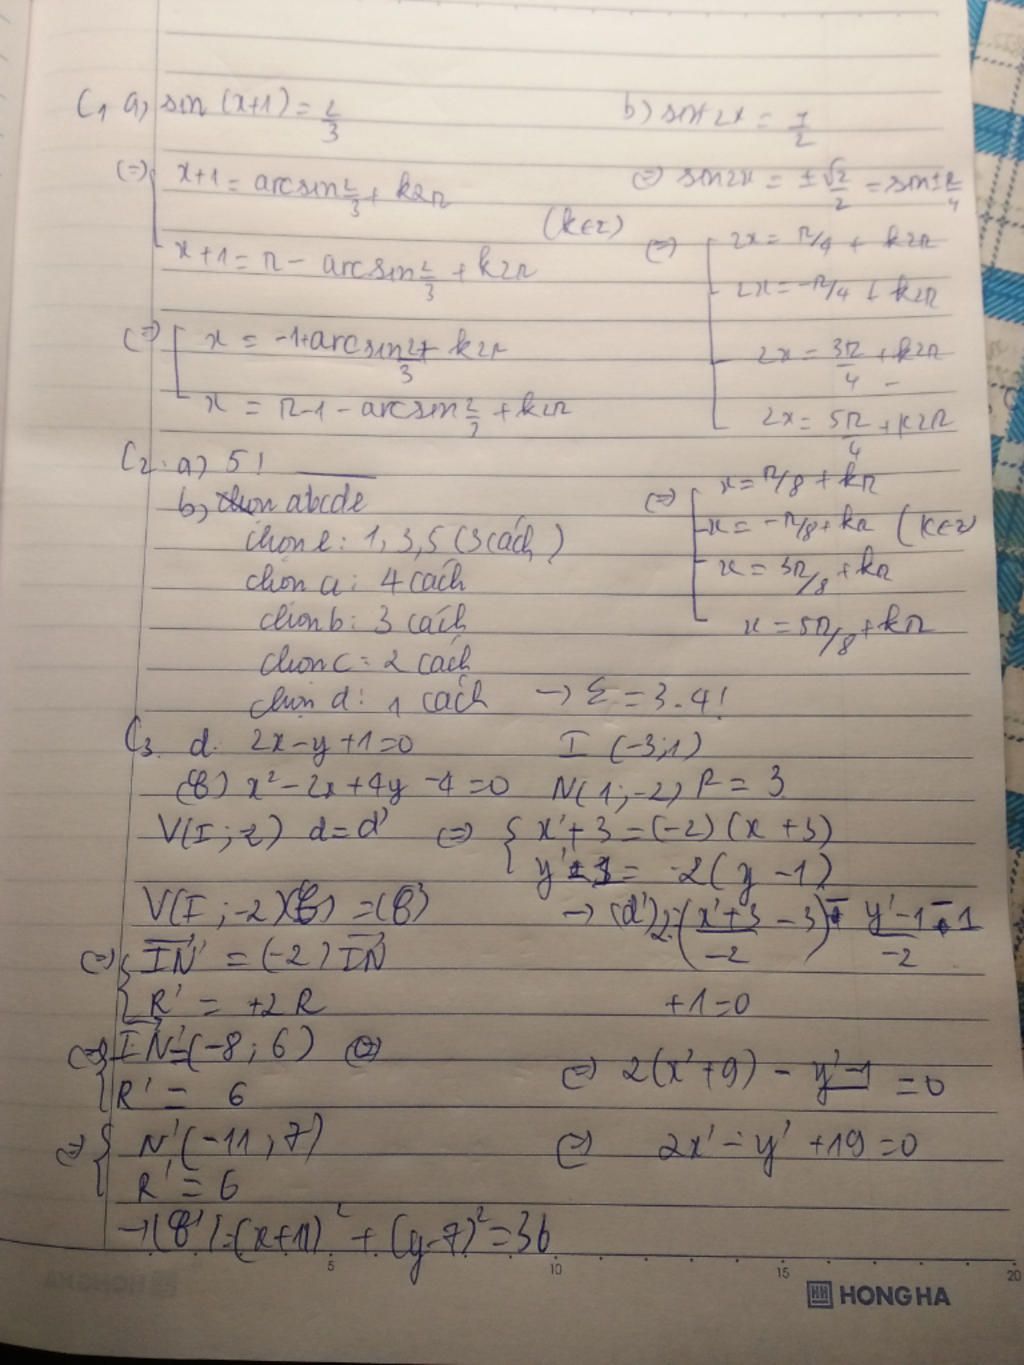 C1 a) sin (x+1) = 2/3
(=) [ x+1 = arcsin 2/3 + k2π
x+1 = π - arcsin 2/3 + k2π
(k∈Z)
(=) [ x = -1+arcsin 2/3 + k2π
x = π-1 - arcsin 2/3 + k2π
b) sin² 2x = 1/2
(=) sin2x = ±√2/2 = sin ±π/4
(=) [ 2x = π/4 + k2π
2x = -π/4 + k2π
2x = 3π/4 + k2π
2x = 5π/4 + k2π
(=) [ x = π/8 + kπ
x = -π/8 + kπ (k∈Z)
x = 3π/8 + kπ
x = 5π/8 + kπ
C2. a) 5!
b) abcde
chọn e: 1, 3, 5 (3 cách)
chọn a: 4 cách
chọn b: 3 cách
chọn c: 2 cách
chọn d: 1 cách → Σ = 3.4!
C3. d: 2x-y+1=0 I (-3;1)
(C) x²-2x+4y-4=0 N(1;-2) R=3
V(I;-2) d=d' (=) { x'+3 = (-2)(x+3)
y'-1 = -2(y-1)
V(I;-2)(C) = (C')
→ (d') 2.((x'+3)/-2 - 3) - (y'-1)/-2 - 1
+1=0
(=) { IN' = (-2) IN
R' = +2R
(=) { IN' = (-8; 6)
R' = 6
(=) 2(x'+9) - y'-1 = 0
(=) { N'(-11; 7)
R' = 6
(=) 2x' - y' + 19 = 0
→ (C'): (x+11)² + (y-7)² = 36
5 10 15 20
HONG HA